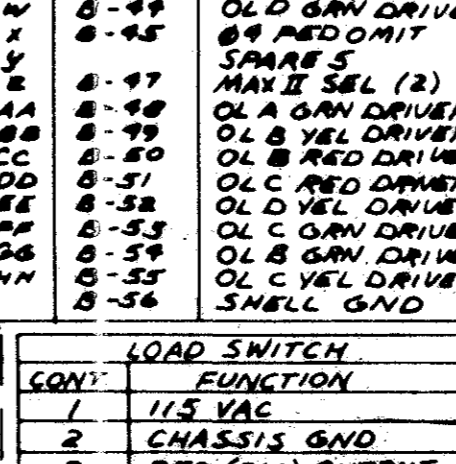 W B-44 OL D GRN DRIVE
X B-45 Ø4 PED OMIT
Y SPARE 5
Z B-47 MAX II SEL (2)
AA B-48 OL A GRN DRIVER
BB B-49 OL B YEL DRIVER
CC B-50 OL B RED DRIVE
DD B-51 OL C RED DRIVER
EE B-52 OL D YEL DRIVE
FF B-53 OL C GRN DRIVE
GG B-54 OL B GRN DRIVE
HH B-55 OL C YEL DRIVE
B-56 SHELL GND
LOAD SWITCH
CONT FUNCTION
1 115 VAC
2 CHASSIS GND